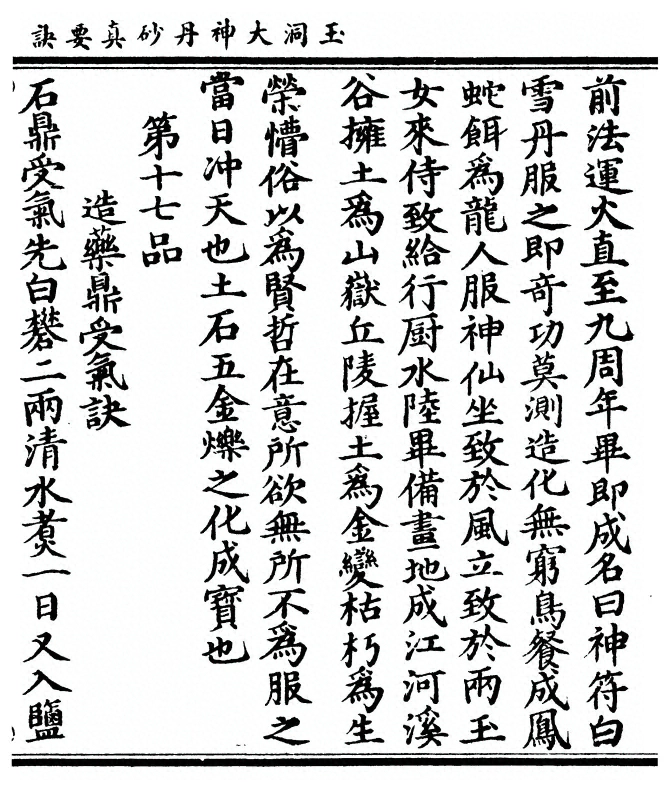 玉洞大神丹砂真要訣
前法運火直至九周年畢即成名曰神符白
雪丹服之即奇功莫測造化無窮鳥餐成鳳
蛇餌爲龍人服神仙坐致於風立致於雨玉
女來侍致給行厨水陸畢備畫地成江河溪
谷擁土爲山嶽丘陵握土爲金變枯朽爲生
榮懵俗以爲賢哲在意所欲無所不爲服之
當日冲天也土石五金爍之化成寶也
第十七品
造藥鼎受氣訣
石鼎受氣先白礬二兩清水煑一日又入鹽